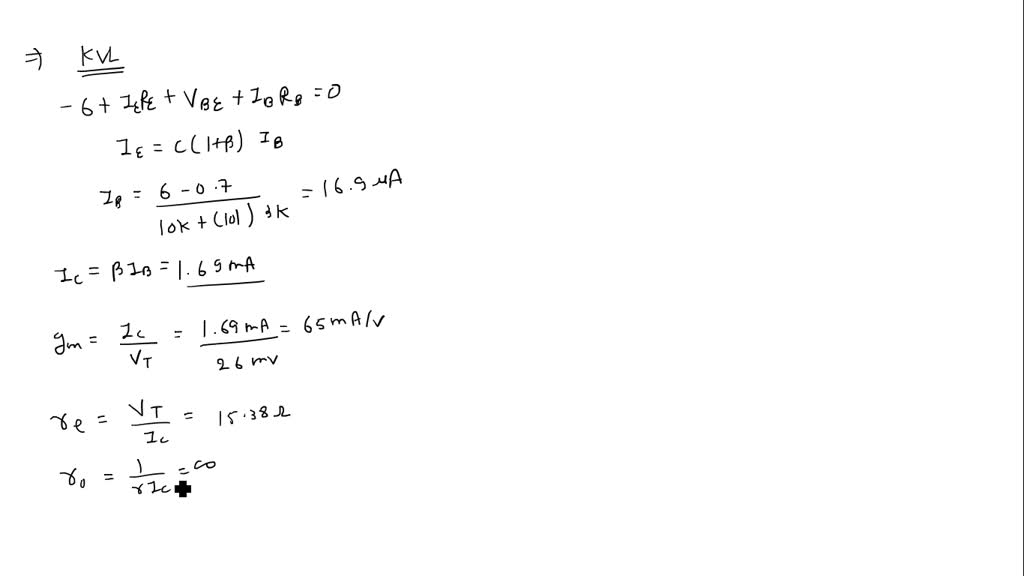 ⇒ KVL
- 6 + IERE + VBE + IB RB = 0
IE = C(1+β) IB
IB = 6 - 0.7 / 10K + (101) 3K = 16.9 μA
IC = β IB = 1.69 mA
gm = IC / VT = 1.69 mA / 26 mv = 65 mA/v
re = VT / IC = 15.38 Ω
r0 = 1 / rIC = ∞